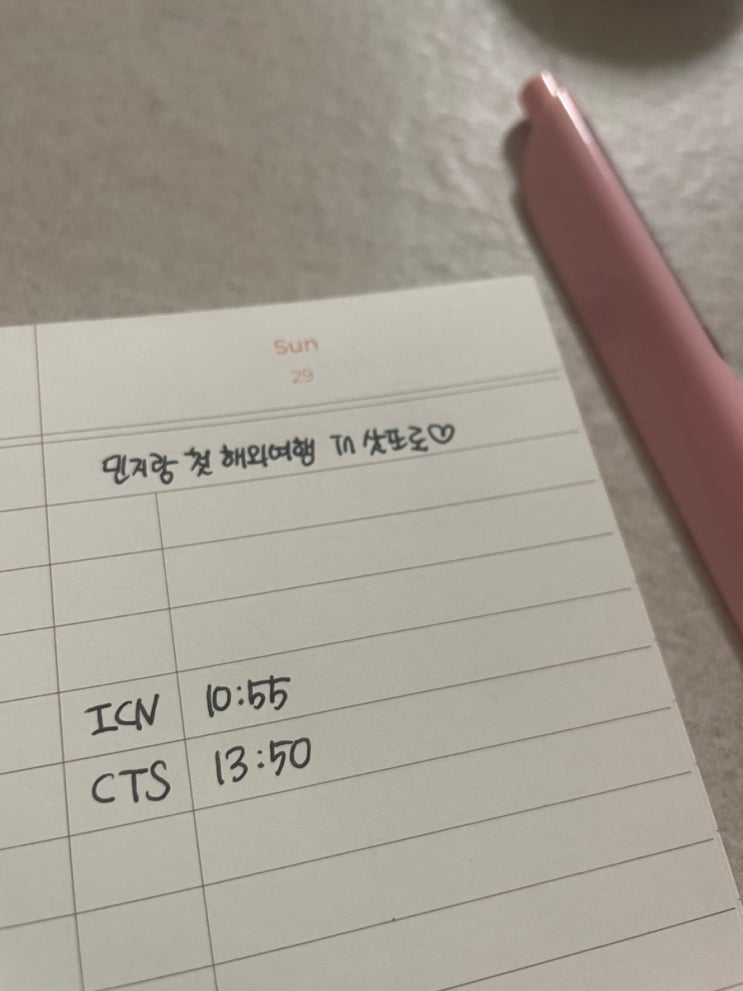 Sun
29
민지랑 첫 해외여행 in 삿포로♡
ICN 10:55
CTS 13:50